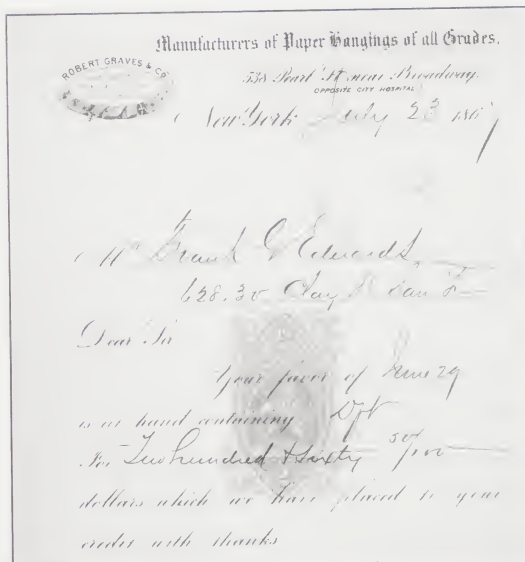 Manufacturers of Paper Hangings of all Grades.
ROBERT GRAVES & CO
538 Pearl St near Broadway.
OPPOSITE CITY HOSPITAL
New York July 23 186
Mr Frank G Edwards
628.30 Clay St San F
Dear Sir
Your favor of June 29
is at hand containing Dft
For Two hundred & Sixty 50/100
dollars which we have placed to your
credit with thanks